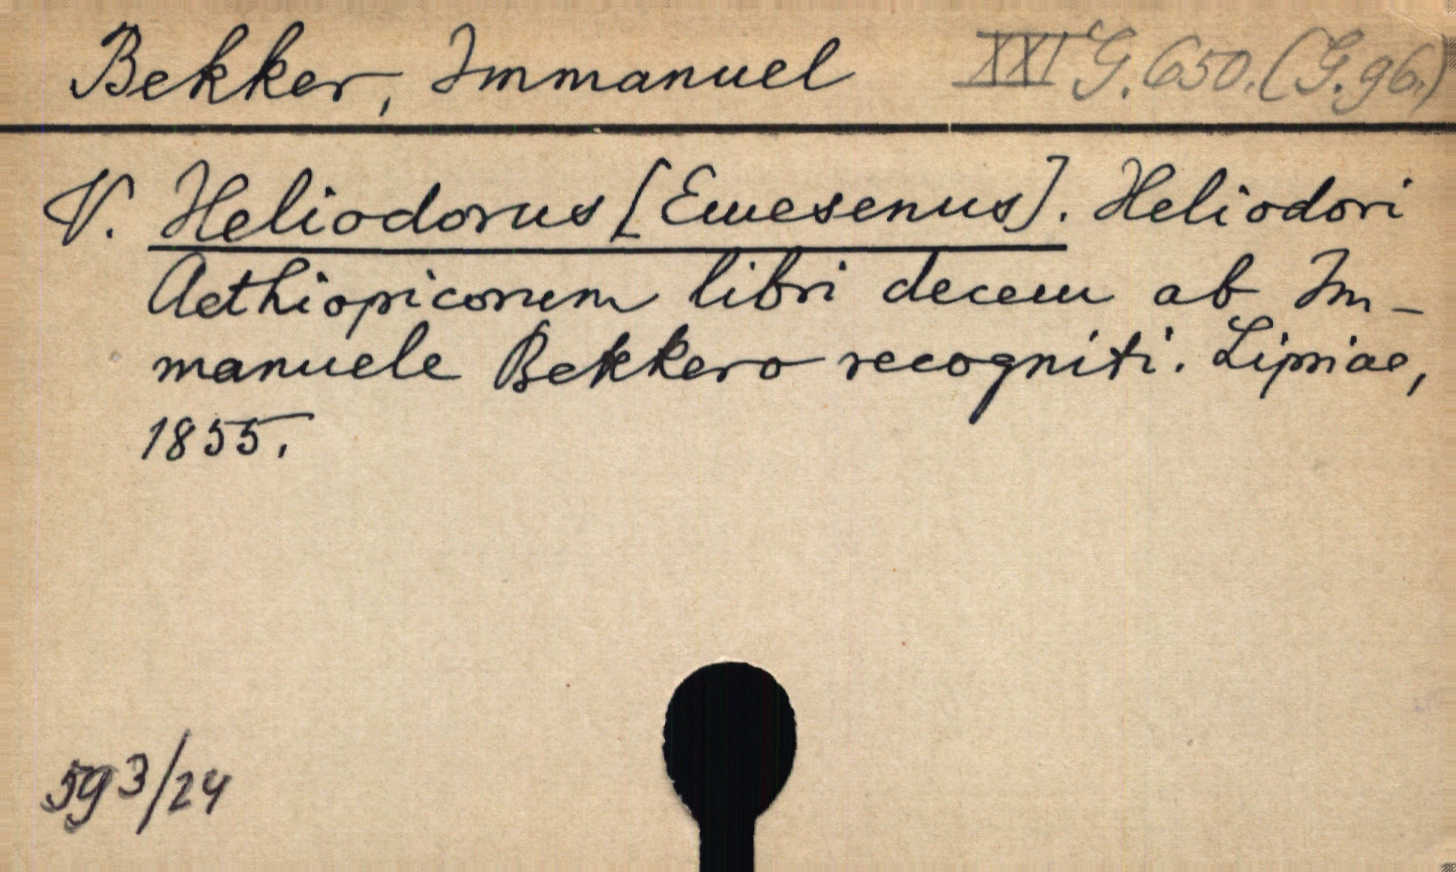 Bekker, Immanuel XXI G. 650. (G. 96.)
V. Heliodorus [Emesenus]. Heliodori
Aethiopicorum libri decem ab Im-
manuele Bekkero recogniti. Lipsiae,
1855.
593/24